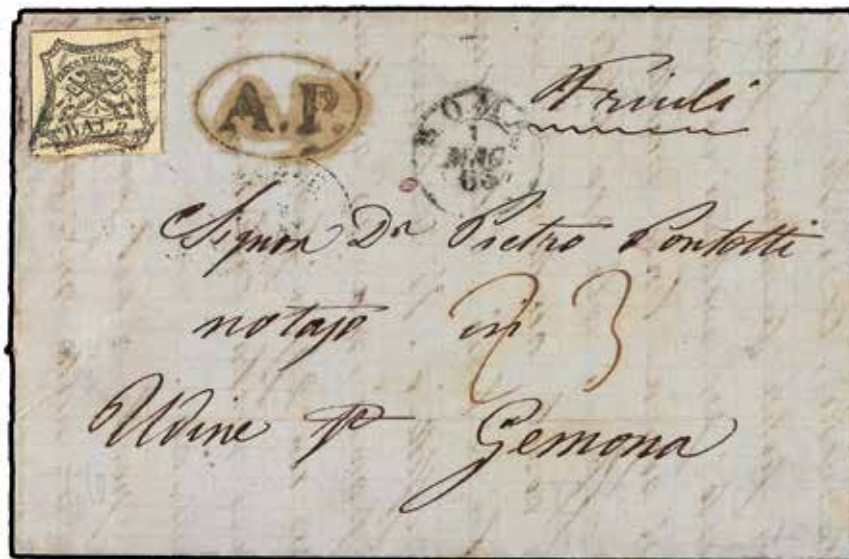 BAJ. 2
A.P.
ROMA
1
MAG.
65
Friuli
Signor Dn Pietro Pontotti
notajo in
23
Udine pr Gemona